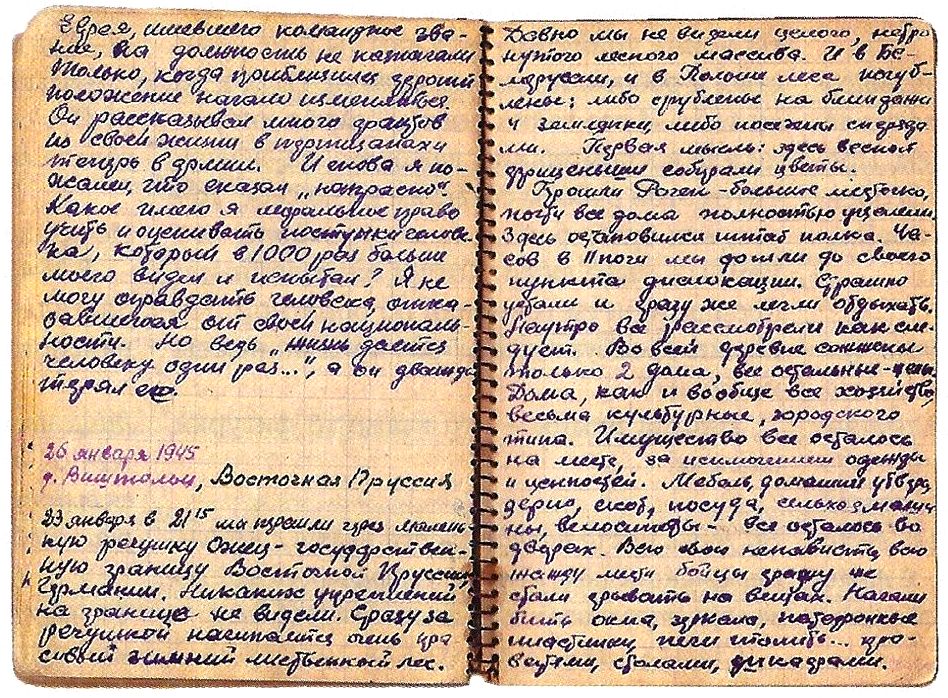 Еврея, имевшего командное зва-
ние, на должность не назначали
Только, когда приблизились
положение начало изменяться.
Он рассказывал много фактов
из своей жизни в партизанах и
теперь в армии. И снова я по-
жалел, что сказал „напрасно“.
Какое имею я моральное право
учить и оценивать поступки челове-
ка, который в 1000 раз больше
моего видел и испытал? Я не
могу оправдать человека, отка-
завшегося от своей национальн-
ности. Но ведь „жизнь дается
человеку один раз...“, а он дважды
терял ее.
26 января 1945
д. Восточная Пруссия
23 января в 21 15 мы перешли через малень-
кую речушку Ожец - государствен-
ную границу Восточной Пруссии
Германии. Никаких укреплений
на границе не видели. Сразу за
речушкой начинается очень кра-
сивый зимний лиственный лес.
Давно мы не видели целого, нетро
нутого лесного массива. И в Бе-
лоруссии, и в Польше леса погуб-
лены: либо срублены на блиндажи
и землянки, либо посечены снаряда
ми. Первая мысль: здесь весной
фрицы собирали цветы.
Прошли - большое местечко,
почти все дома полностью уцелели.
Здесь остановился штаб полка. Ча-
сов в 11 ночи мы дошли до своего
пункта дислокации. Страшно
устали и сразу же легли отдыхать.
Наутро все рассмотрели как сле-
дует. Во всей деревне сожжены
только 2 дома, все остальные - целы.
Дома, как и вообще все хозяйство,
весьма культурные, городского
типа. Имущество все осталось
на месте, за исключением одежды
и ценностей. Мебель, домашняя утварь,
зерно, скот, посуда, сельхозмаши
ны, велосипеды - все осталось во
дворах. Всю свою ненависть, всю
жажду мести бойцы сразу же
стали срывать на вещах. Начали
бить окна, зеркала, патефонные
пластинки, печи топить... кро-
ватями, столами, шкафами.